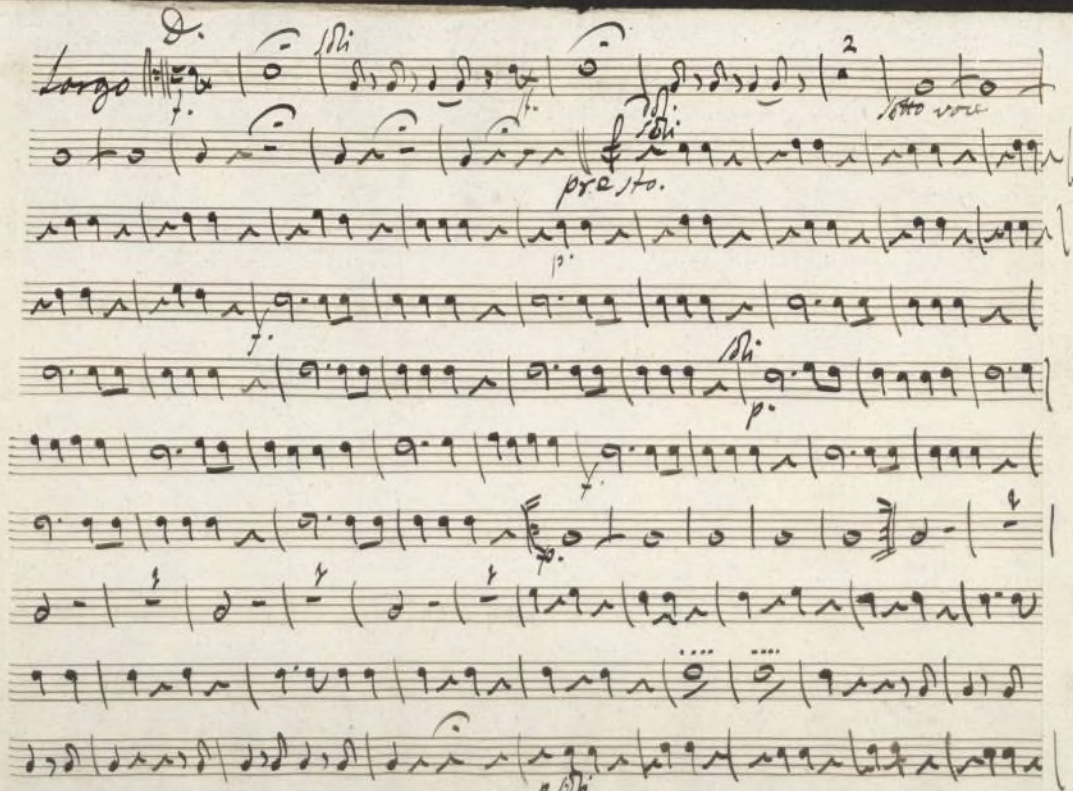 D.
Largo f. soli f. 2 sotto voce
soli presto.
p.
f.
soli p.
f.
p. 1
1 1 1
p soli